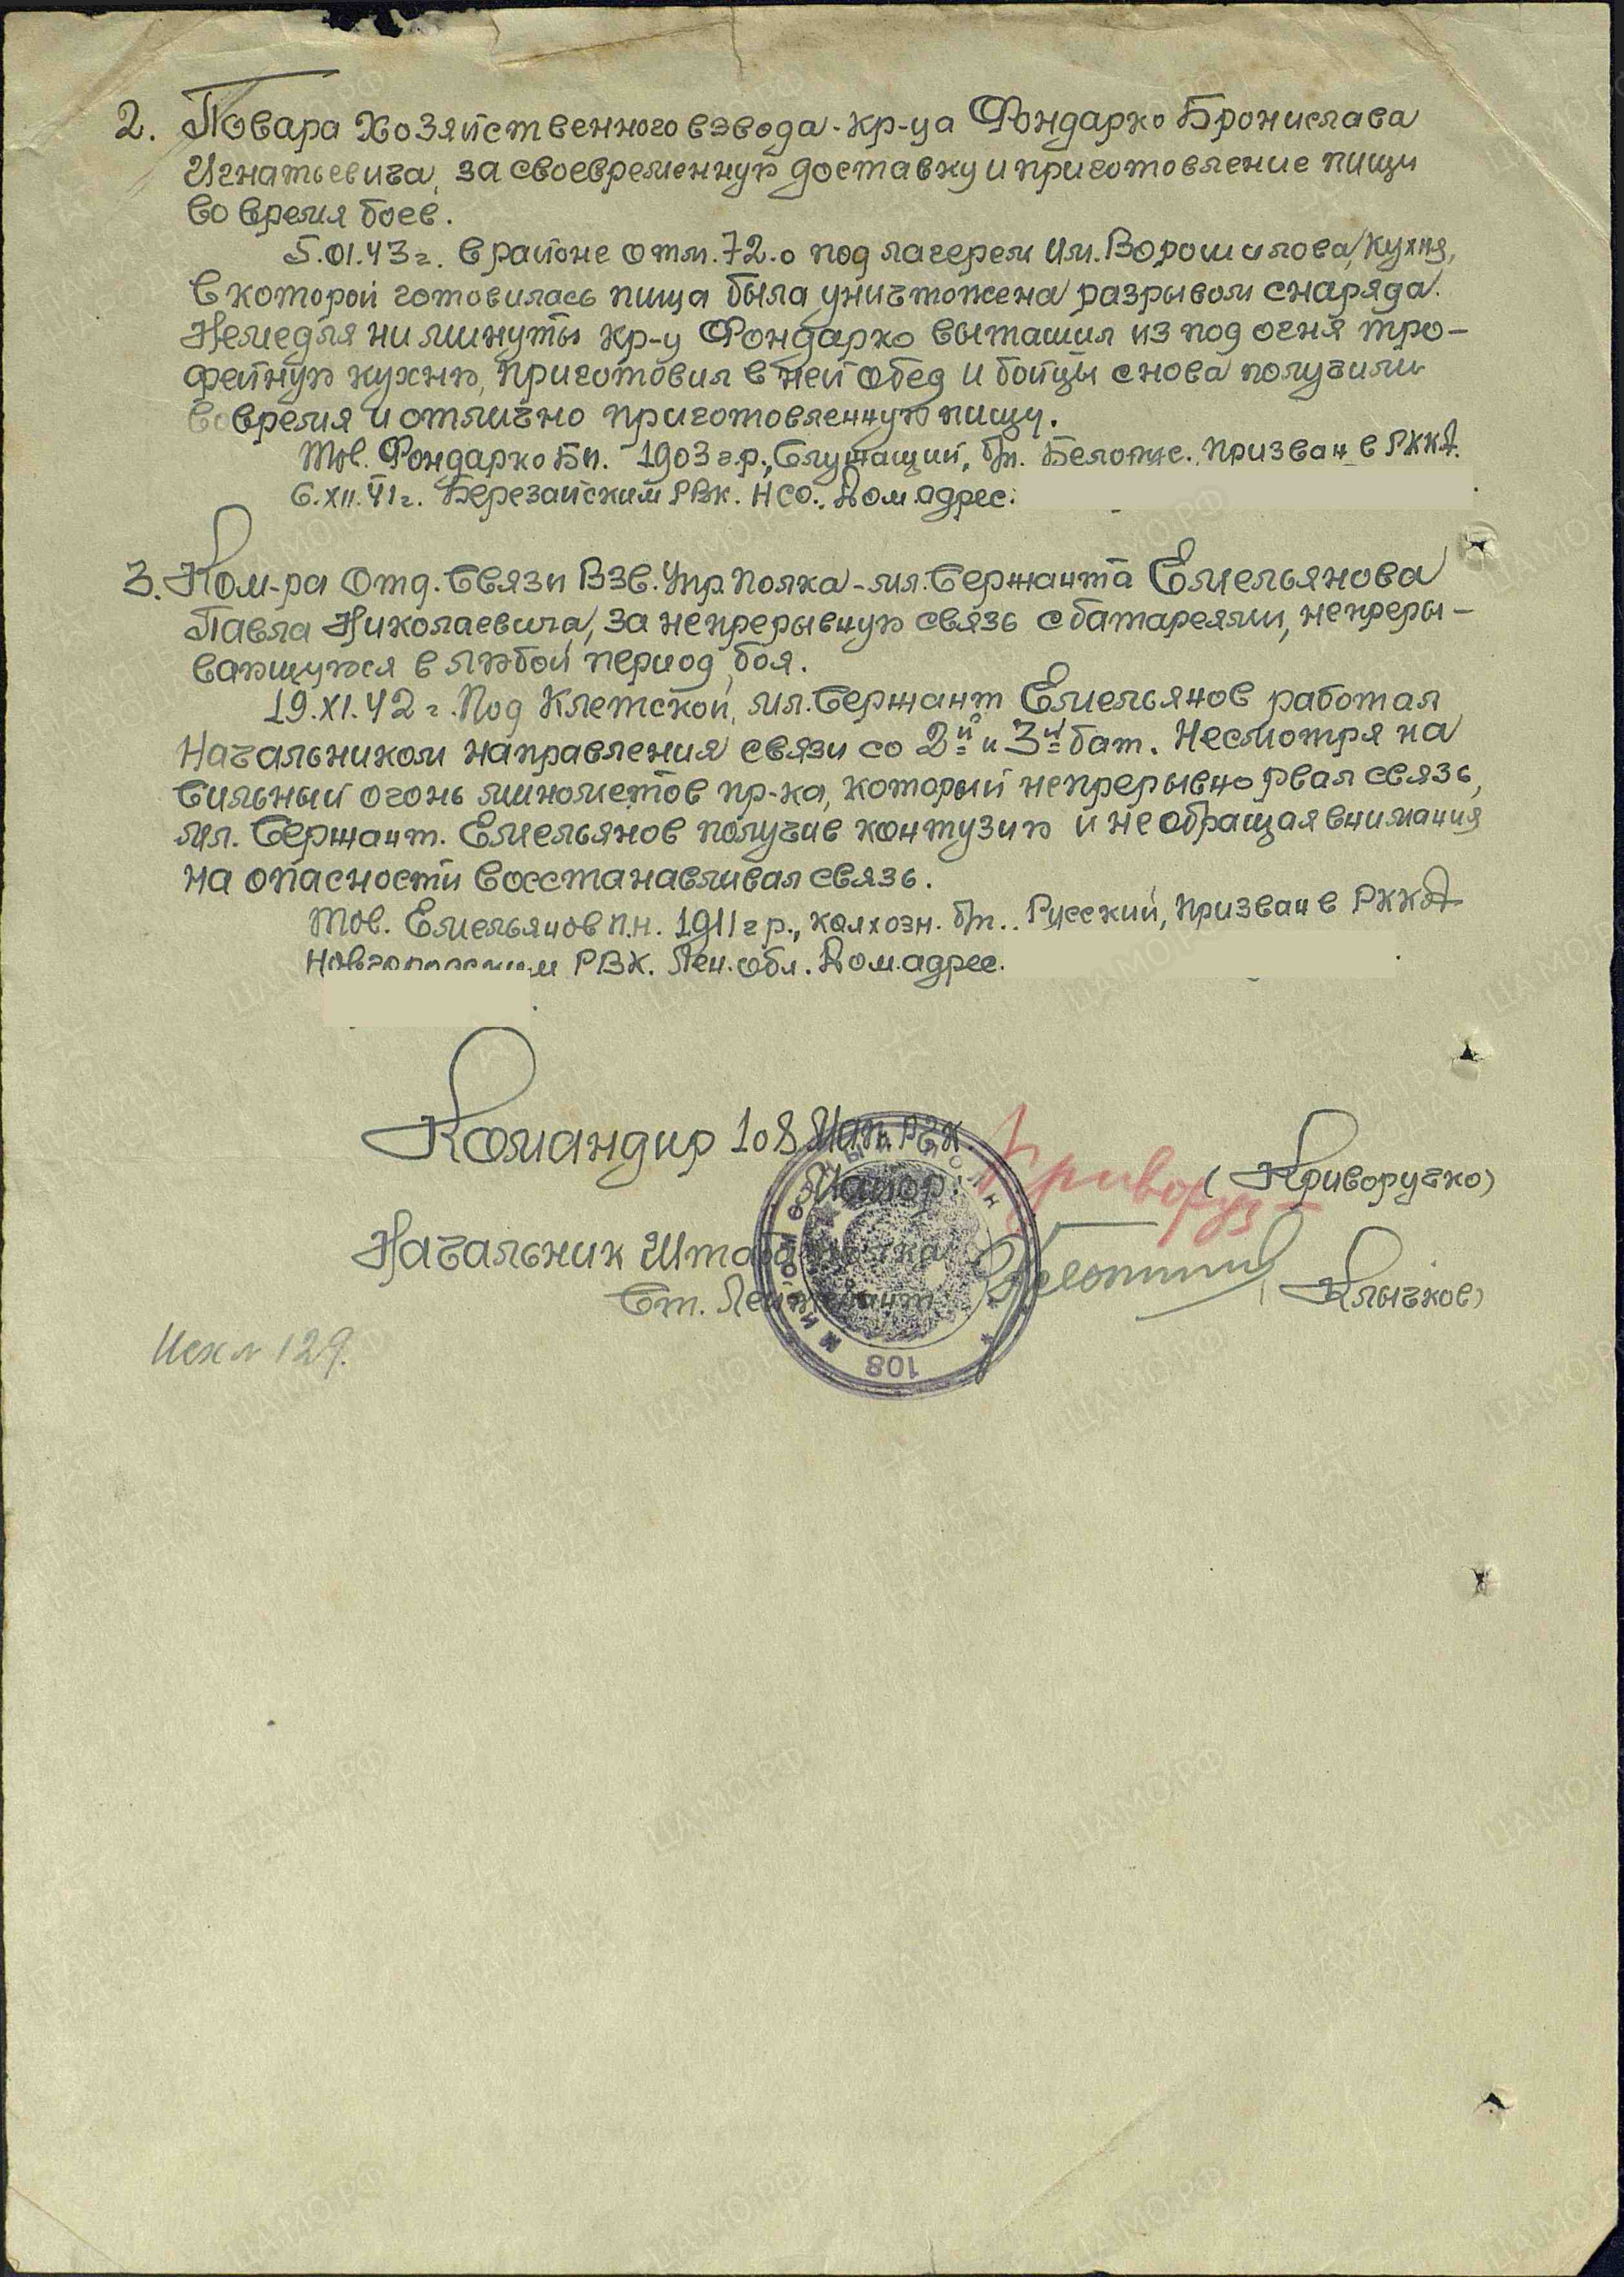 2. Повара Хозяйственного взвода-кр-ца Фондарко Бронислава
Игнатьевича, за своевременную доставку и приготовление пищи
во время боев.
5.01.43 г. в районе отм. 72.0 под лагерем им. Ворошилова, кухня,
в которой готовилась пища была уничтожена разрывом снаряда.
Немедля ни минуты кр-ц Фондарко вытащил из под огня тро-
фейную кухню, приготовил в ней обед и бойцы снова получили
вовремя и отлично приготовленную пищу.
Тов. Фондарко Би. 1903 г.р., Служащий, б/п. Призван в РККА
6.XII.41 г. Березайским РВК. НСО. Дом адрес:
3. Ком-ра Отд. Связи Взв. Упр. Полка-мл. Сержанта Емельянова
Павла Николаевича, за непрерывную связь с батареями, непреры-
вающуюся в любой период боя.
19.XI.42 г. Под Клетской, мл. Сержант Емельянов работал
Начальником направления связи со 2й и 3й бат. Несмотря на
Сильный огонь минометов пр-ка, который непрерывно рвал связь,
мл. Сержант. Емельянов получив контузию и не обращая внимания
на опасности восстанавливал связь.
Тов. Емельянов П.Н. 1911 г р., колхозн. б/п.. Русский, призван в РККА
Новгородским РВК. Лен. обл. Дом. адрес.
Командир 108 Мап. РГК
Майор: (Криворучко)
Начальник Штаба полка
Ст. Лейтенант (Клычков)
Исх № 129.
108